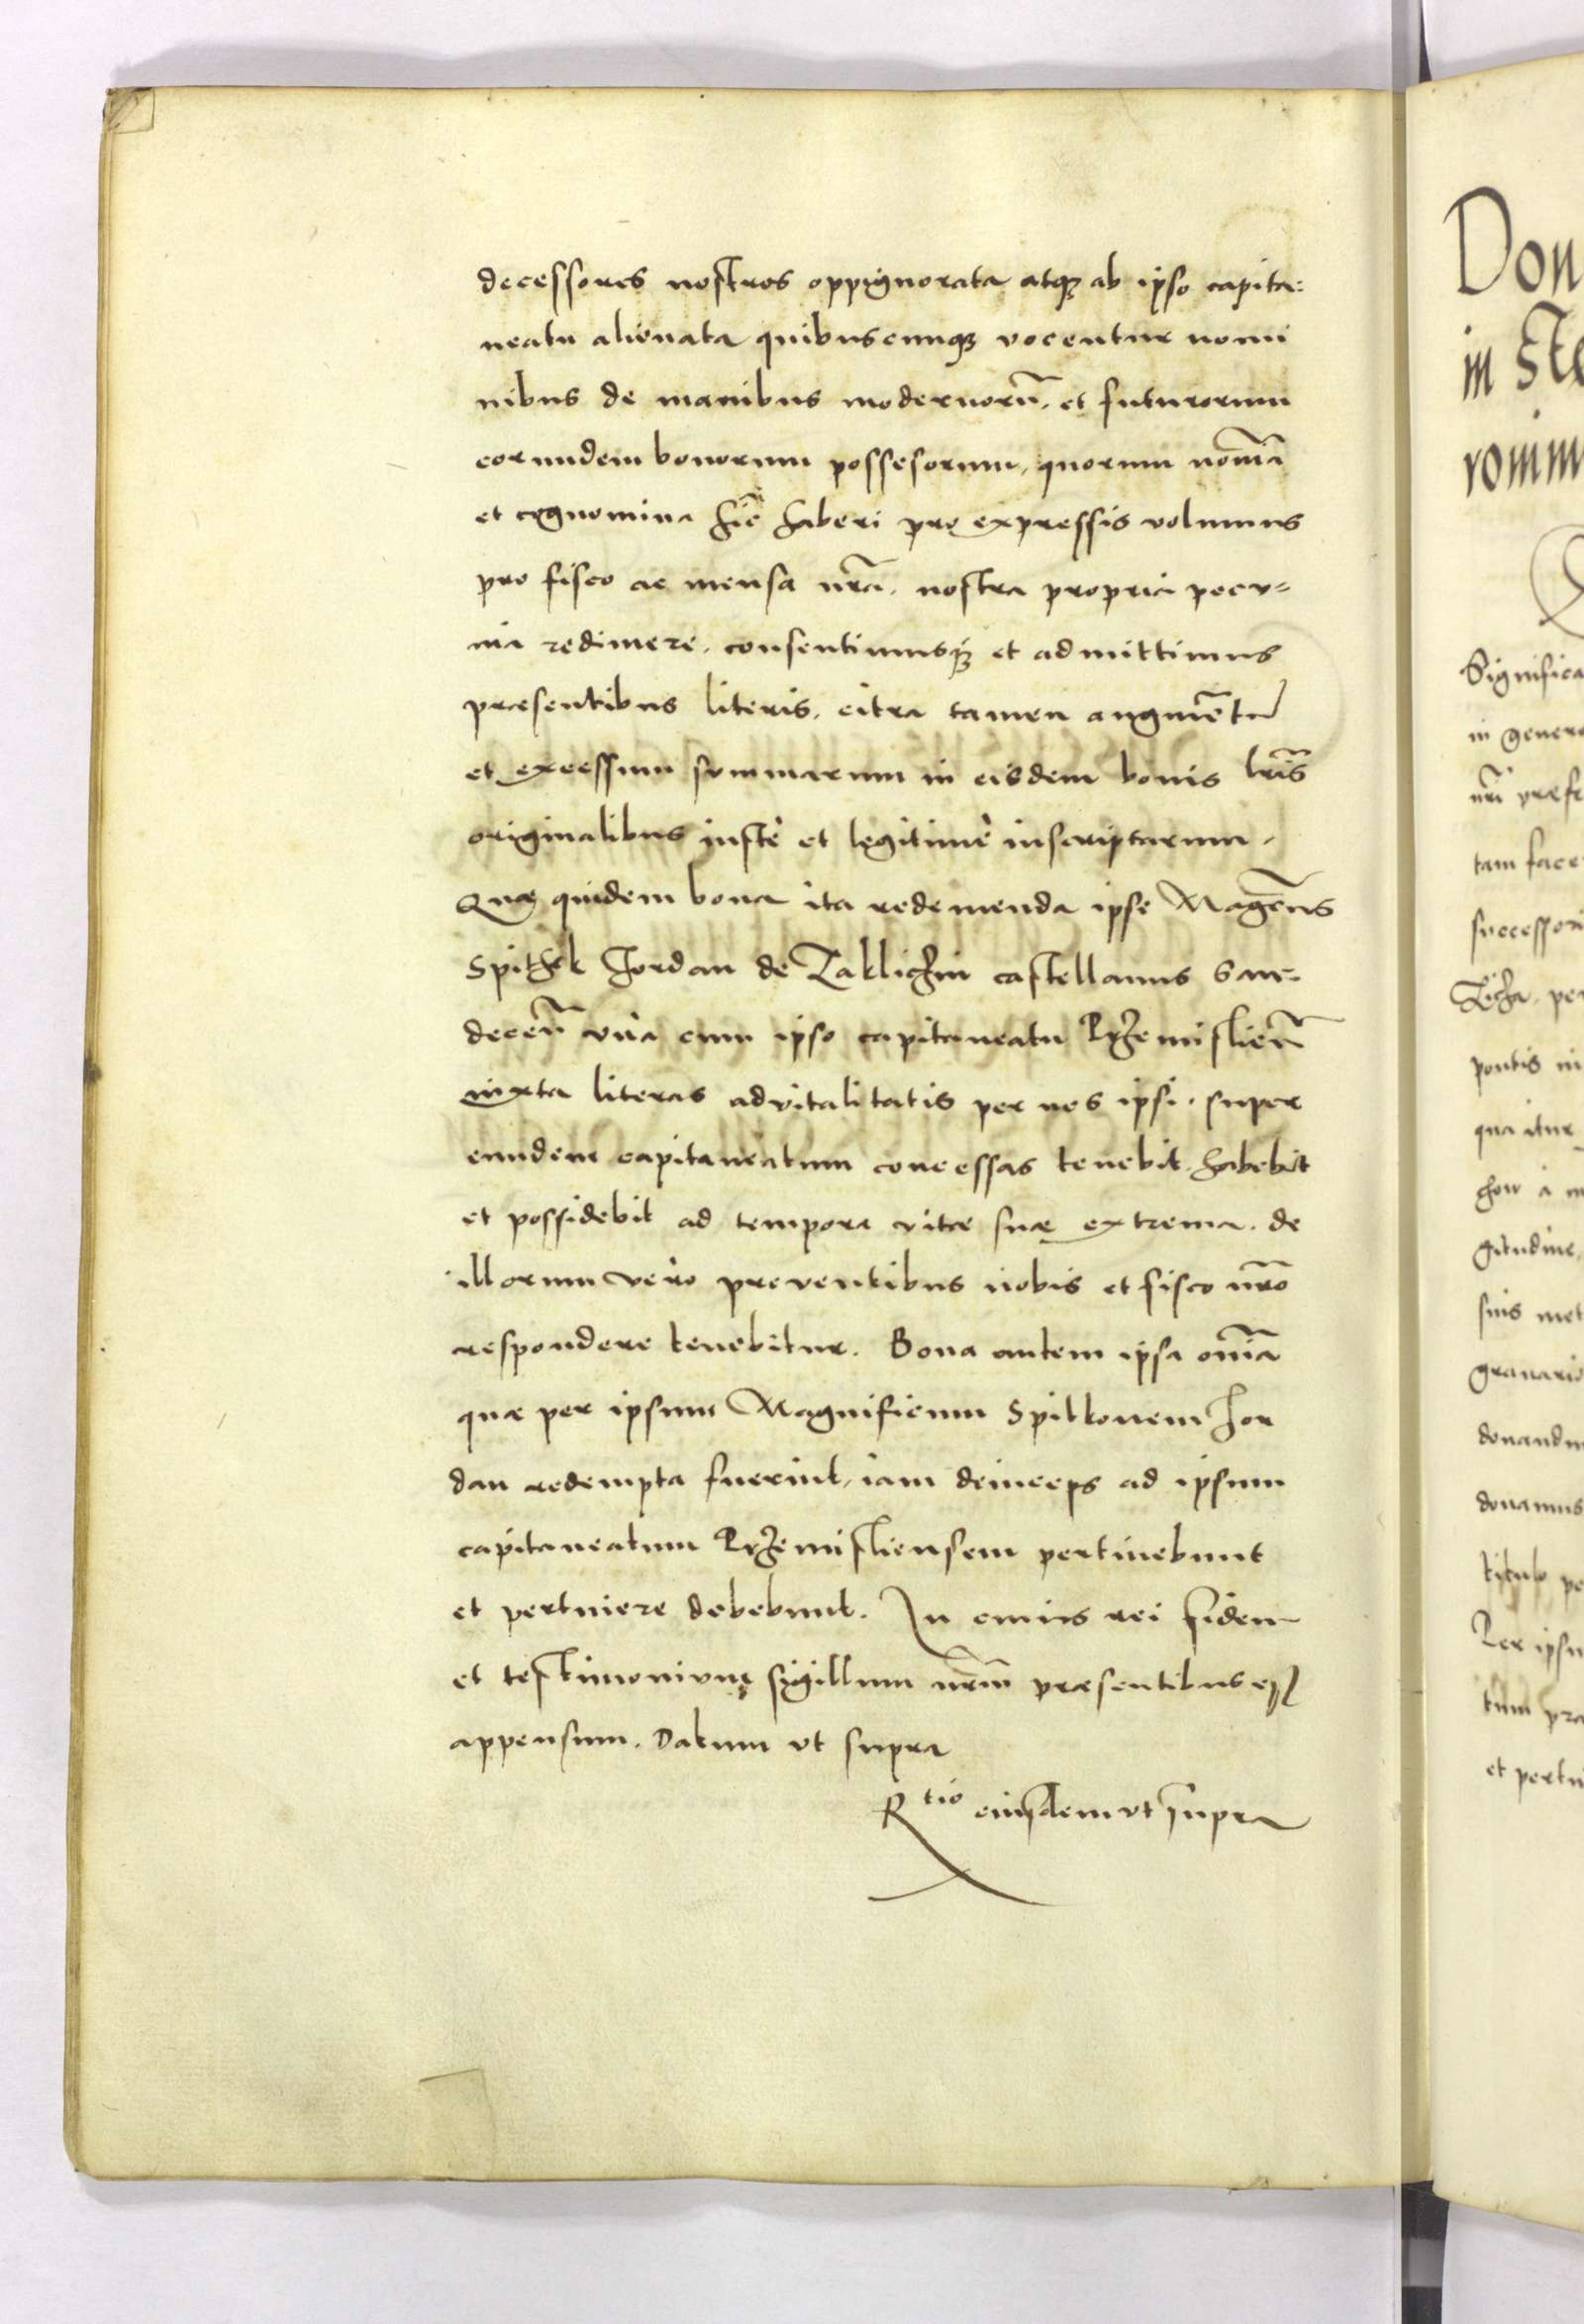 decessores nostros oppignorata atq₃ ab ipso capita:
neatu alienata quibuscunq₃ vocentur nomi
nibus de manibus modernorũ, et futurorum
eorundem bonorum possesorum, quorum noĩa
et cognomina hic haberi pro expressis volumus
pro fisco ac mensa nr̃a, nostra propria pecu=
nia redimere, consentimusq₃ et admittimus
præsentibus literis, citra tamen augmẽtu
et excessum summarum in eisdem bonis lr̃is
originalibus iuste et legitime inscriptarum.
Quæ quidem bona ita redemenda ipse Magcũs
Spithek Jordan de Zaklichin castellanus San-
deceñ una cum ipso capitaneatu Przemislieñ
iuxta literas advitalitatis per nos ipsi super
eundem capitaneatum concessas tenebit, habebit
et possidebit ad tempora vitæ suæ extrema. de
illorum vero preventibus nobis et fisco nr̃o
respondere tenebitur. Bona autem ipsa oĩa
quæ per ipsum Magnificum Spitkonem Jor
dan redempta fuerint, iam deinceps ad ipsum
capitaneatum Przemisliensem pertinebunt
et pertinere debebunt. In cuius rei fidem
et testimonium sigillum nr̃m præsentibus e͂
appensum. Datum ut supra
Rtio eiusdem ut supra
Don
in Ste
romin
Significa
in genera
nr̃i præfe
tam face
successori
Licha, per
pontis in
qua itur
chow a m
gitudine,
suis met
granario
donandu
donamus
titulo pe
Per ipsu
tum pra
et pertin